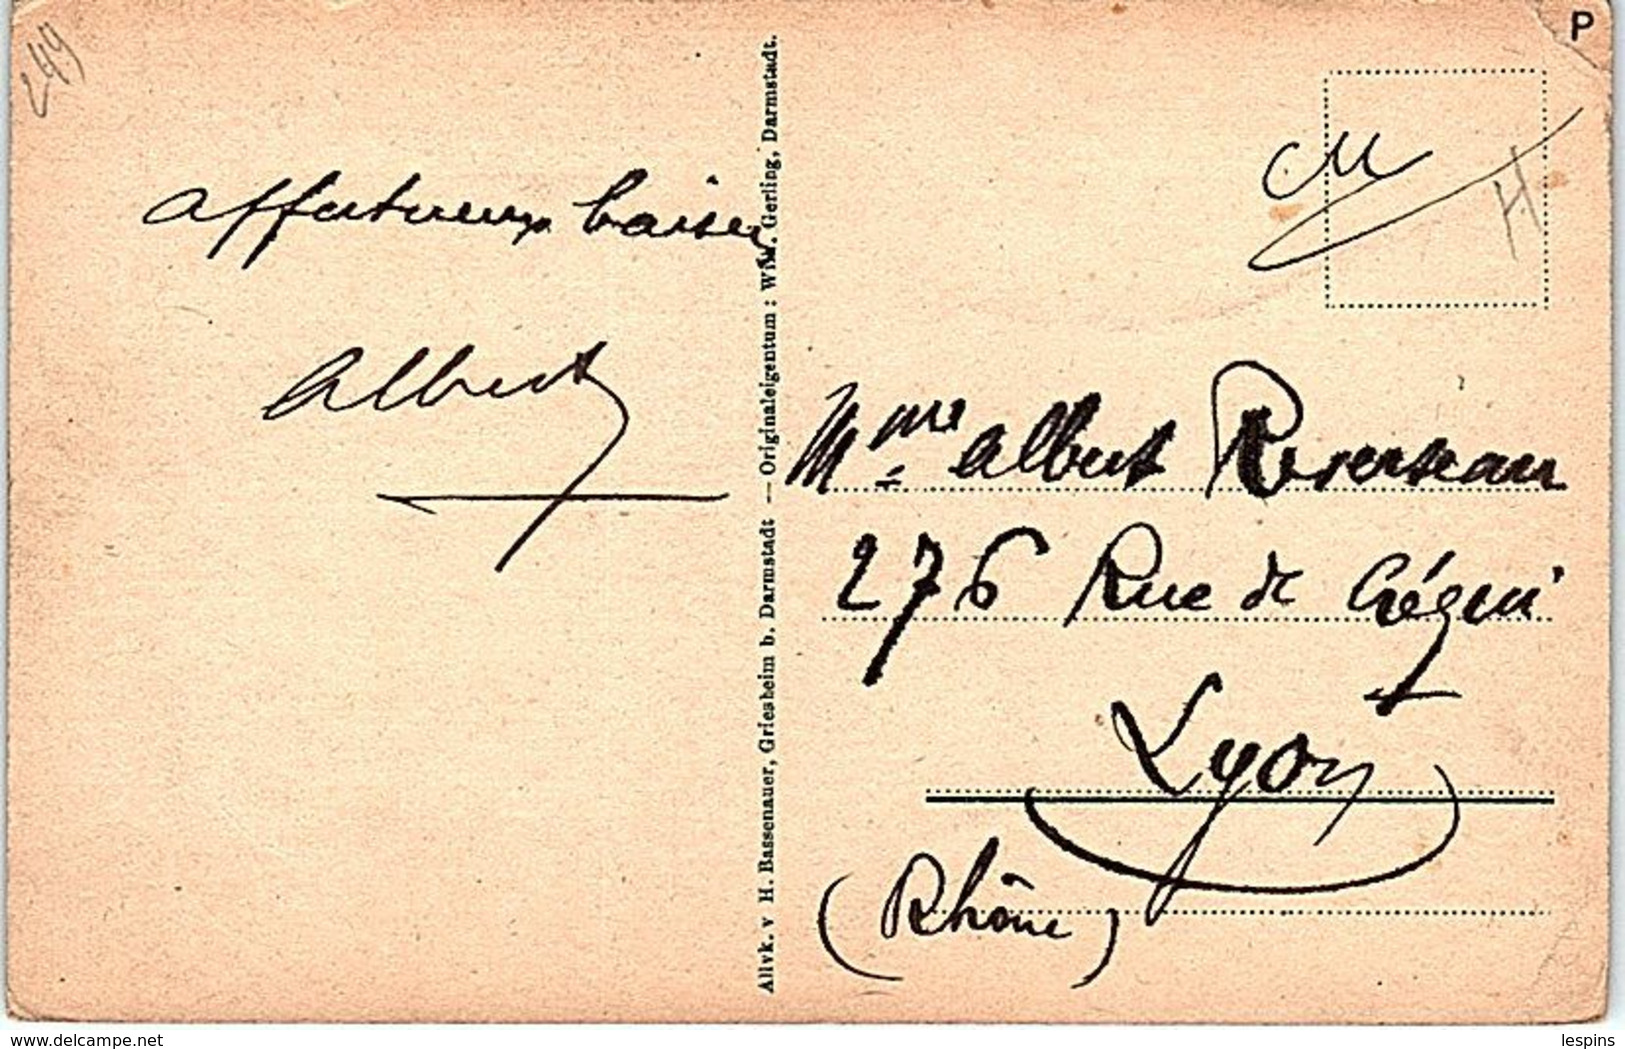 249
P
CM
H
affectueux baisers
Albert
Allvk. v H. Bassenauer, Griesheim b. Darmstadt — Originaleigentum: Wilh. Gerling, Darmstadt.
Mme Albert
276 Rue de Créqui
Lyon
(Rhône)
www.delcampe.net
lespins